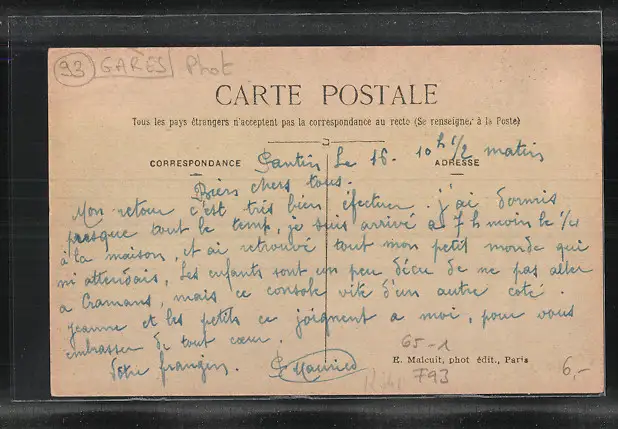 93 GARES Phot
CARTE POSTALE
Tous les pays étrangers n'acceptent pas la correspondance au recto (Se renseigner à la Poste)
CORRESPONDANCE
ADRESSE
Pantin Le 16. 10h 1/2 matin
Biens chers tous.
Mon retour c'est très bien éfectuer. j'ai dormis
presque tout le temp, je suis arrivé à 7h moin le 1/4
à la maison, et ai retrouvé tout mon petit monde qui
m'attendais, Les enfants sont un peu déçu de ne pas aller
a Cramans, mais ce console vite d'un autre coté.
Jeanne et les petits ce joignent a moi, pour vous
embrasser de tout cœur.
Votre frangin. Maurice
65-1
E. Malcuit, phot édit., Paris
793
6,-